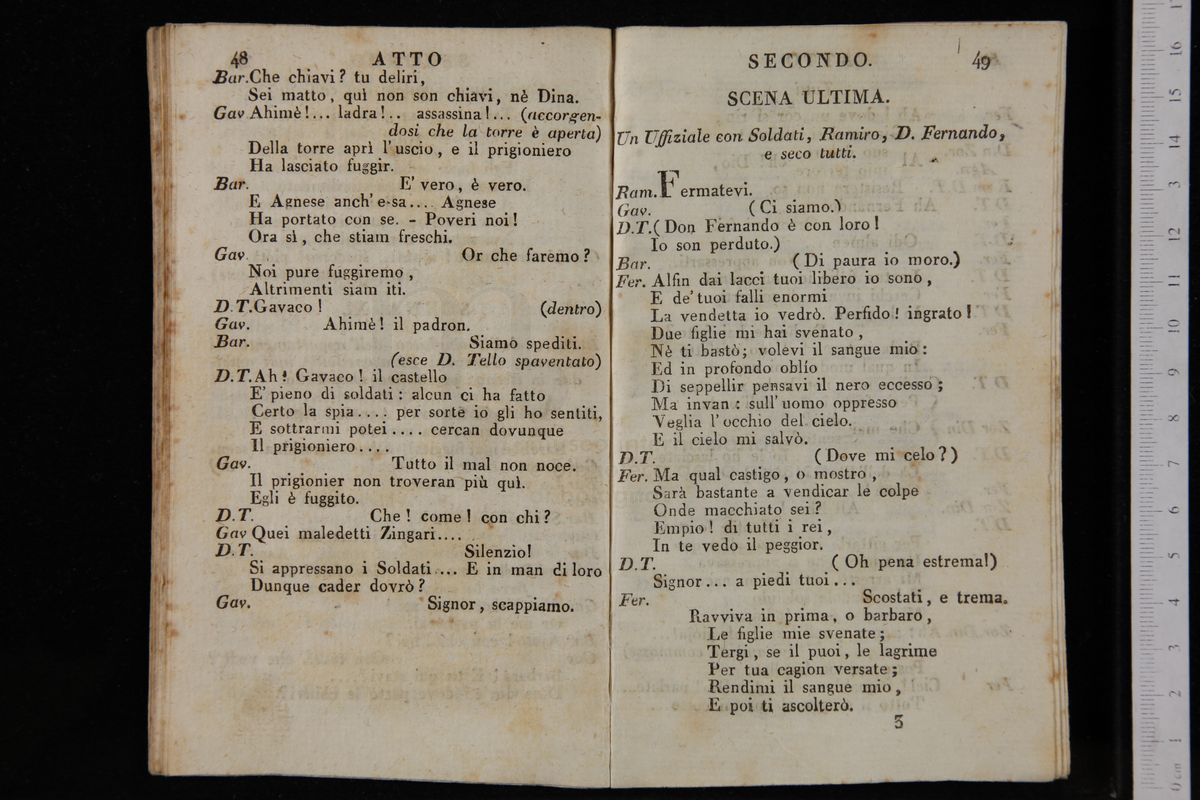 48 ATTO
Bar. Che chiavi? tu deliri,
Sei matto, quì non son chiavi, nè Dina.
Gav Ahimè!... ladra!.. assassina!... (accorgen-
dosi che la torre è aperta)
Della torre aprì l'uscio, e il prigioniero
Ha lasciato fuggir.
Bar. E' vero, è vero.
E Agnese anch'essa.... Agnese
Ha portato con se. - Poveri noi!
Ora sì, che stiam freschi.
Gav. Or che faremo?
Noi pure fuggiremo,
Altrimenti siam iti.
D. T. Gavaco! (dentro)
Gav. Ahimè! il padron.
Bar. Siamo spediti.
(esce D. Tello spaventato)
D. T. Ah! Gavaco! il castello
E' pieno di soldati: alcun ci ha fatto
Certo la spia.... per sorte io gli ho sentiti,
E sottrarmi potei.... cercan dovunque
Il prigioniero....
Gav. Tutto il mal non noce.
Il prigionier non troveran più quì.
Egli è fuggito.
D. T. Che! come! con chi?
Gav Quei maledetti Zingari....
D. T. Silenzio!
Si appressano i Soldati.... E in man di loro
Dunque cader dovrò?
Gav. Signor, scappiamo.
SECONDO. 49
SCENA ULTIMA.
Un Uffiziale con Soldati, Ramiro, D. Fernando,
e seco tutti.
Ram. Fermatevi.
Gav. (Ci siamo.)
D. T. (Don Fernando è con loro!
Io son perduto.)
Bar. (Di paura io moro.)
Fer. Alfin dai lacci tuoi libero io sono,
E de' tuoi falli enormi
La vendetta io vedrò. Perfido! ingrato!
Due figlie mi hai svenato,
Nè ti bastò; volevi il sangue mio:
Ed in profondo oblío
Di seppellir pensavi il nero eccesso;
Ma invan: sull'uomo oppresso
Veglia l'occhio del cielo.
E il cielo mi salvò.
D. T. (Dove mi celo?)
Fer. Ma qual castigo, o mostro,
Sarà bastante a vendicar le colpe
Onde macchiato sei?
Empio! di tutti i rei,
In te vedo il peggior.
D. T. (Oh pena estrema!)
Signor... a piedi tuoi...
Fer. Scostati, e trema.
Ravviva in prima, o barbaro,
Le figlie mie svenate;
Tergi, se il puoi, le lagrime
Per tua cagion versate;
Rendimi il sangue mio,
E poi ti ascolterò.
3